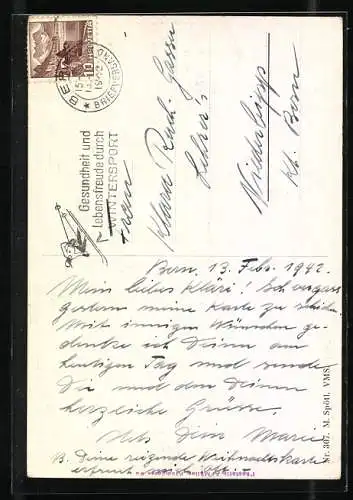 BERN
BRIEFVERSAND
HELVETIA
10
Gesundheit und
Lebensfreude durch
WINTERSPORT
Klara
Lehrer's
Niederbipp
Kt. Bern
Bern, 13. Febr. 1942.
Mein liebes Kläri! Ich vergass
gestern meine Karte zu schicken.
Mit innigen Wünschen ge-
denke ich Deiner am
heutigen Tag und sende
Dir und den Deinen
herzliche Grüsse.
Dein Marie
Deine reizende Weihnachtskarte
erfreut mich
Nr. 307. M. Spötl. VMS